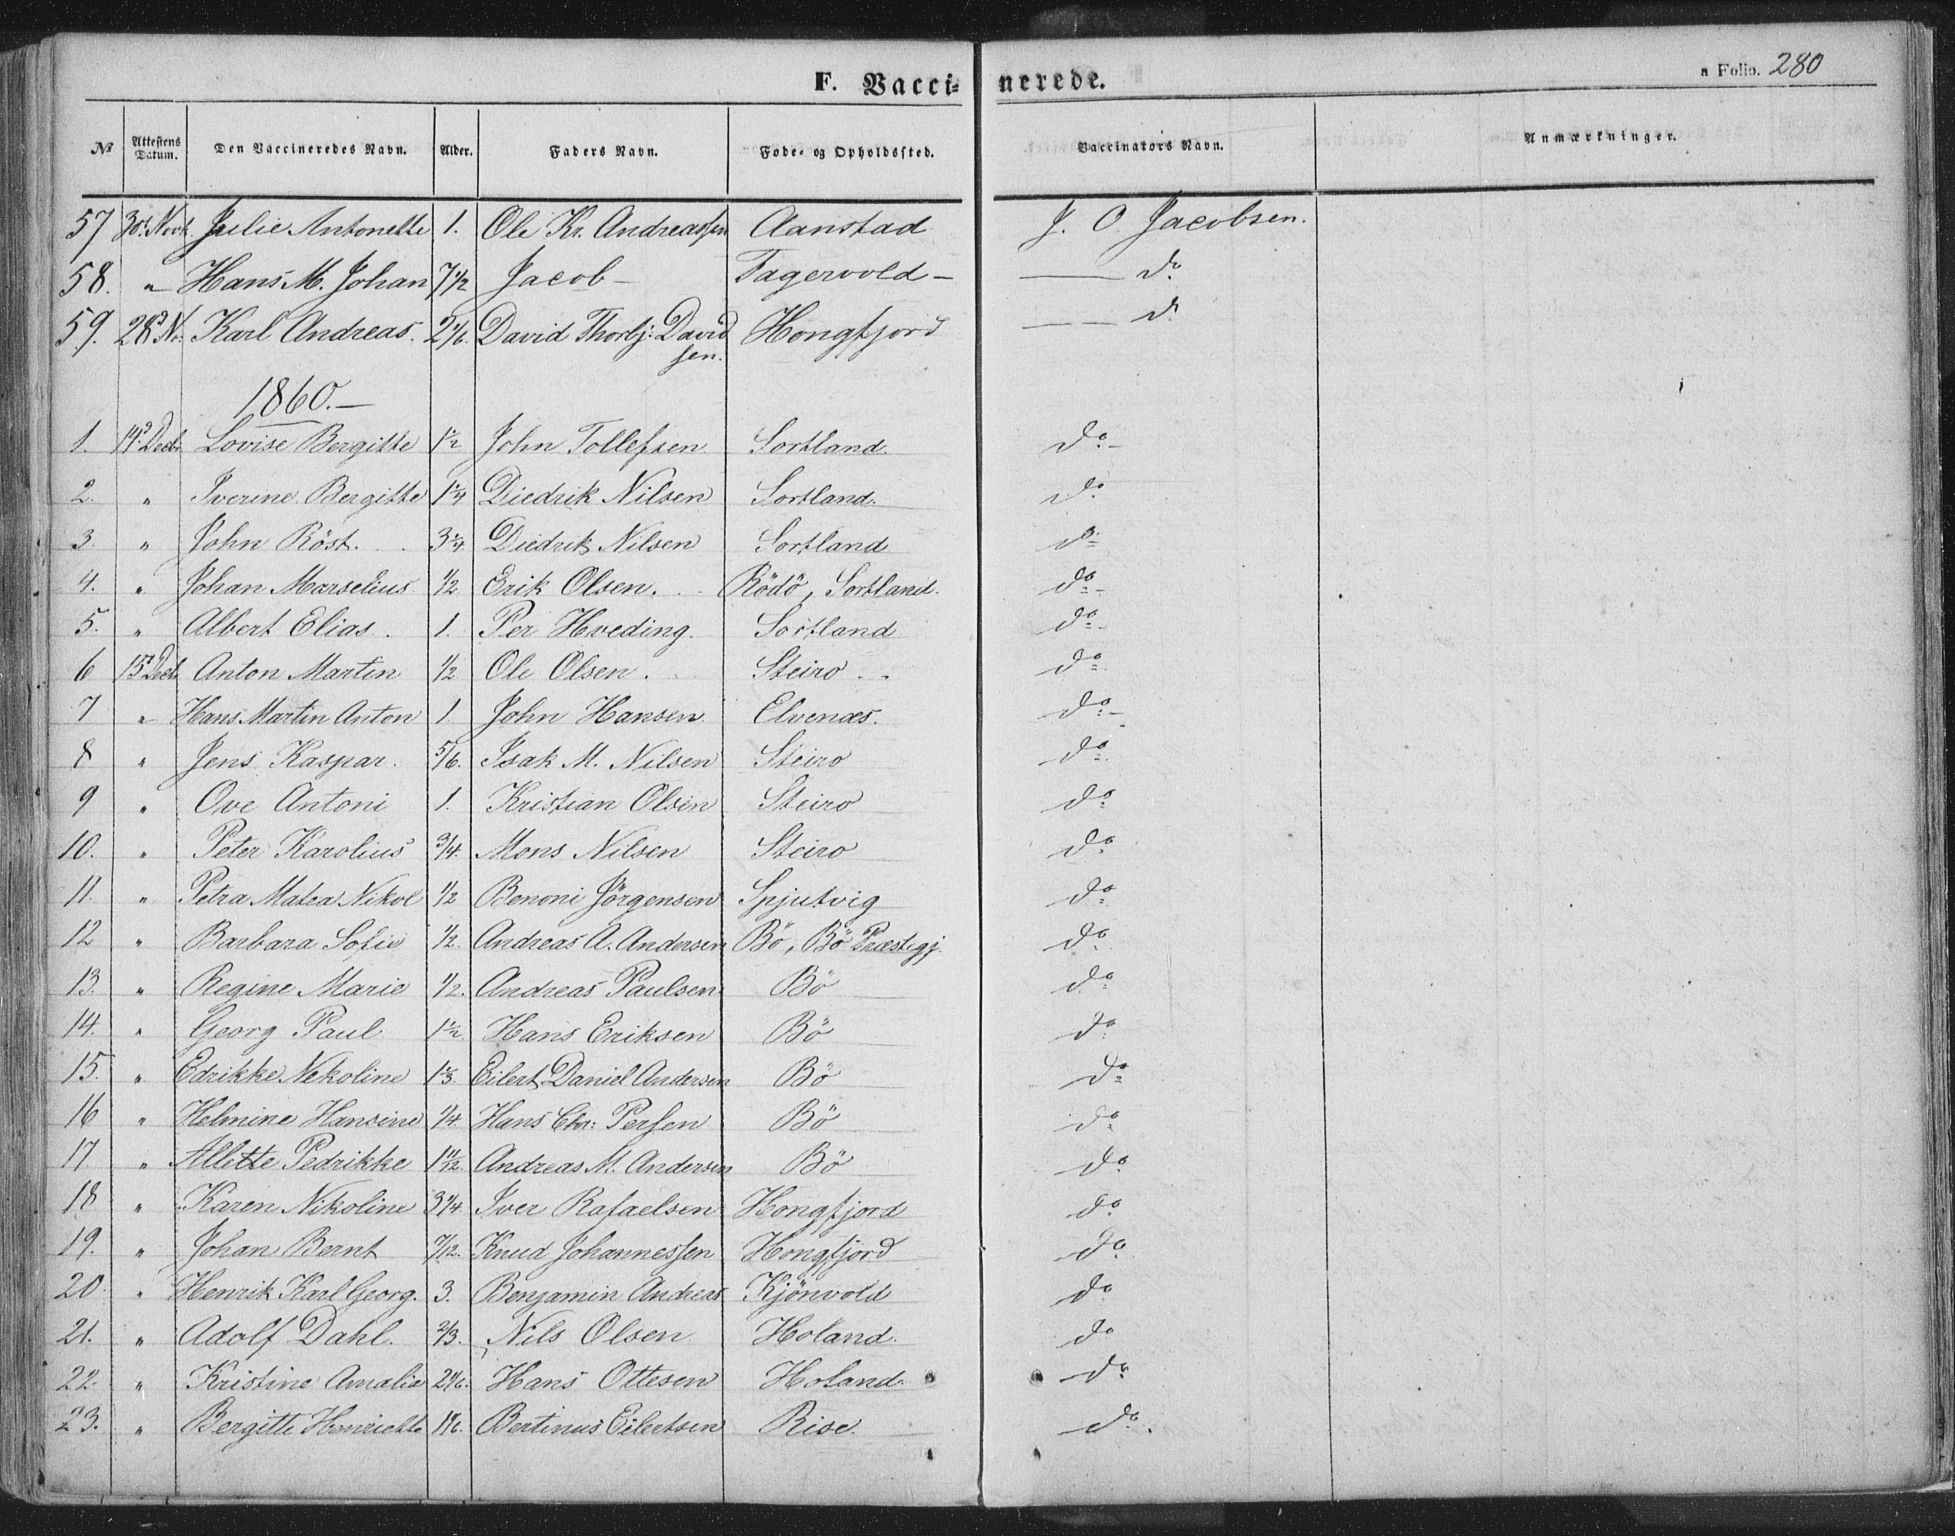 F. Vaccinerede. a Folio. 280
№ Attestens Datum. Den Vaccineredes Navn. Alder. Faders Navn. Føde- og Opholdssted. Vaccinators Navn. Anmærkninger.
57 30. Novb. Julie Antonette 1. Ole Kr. Andreassen Aanstad J. O. Jacobsen.
58. " Hans M. Johan 7 1/2 Jacob — Fagervold — — do
59. 28 N. Karl Andreas. 2 1/6. David Thorbj: David Hongfjord — — do
sen.
1860. —
1. 14. Decb. Lovise Bergitte 1 1/2 John Tollefsen Sortland do —
2. " Iverine Bergitte 1 1/4 Diedrik Nilsen Sortland. do
3. " John Röst. 3 3/4 Diedrik Nilsen Sortland do
4. " Johan Marselius 1/2 Erik Olsen. Rödö, Sortland. do
5. " Albert Elias. 1. Per Hveding. Sortland do
6 15 Decb. Anton Martin 1/2 Ole Olsen. Steiro do
7 " Hans Martin Anton 1 John Hansen Elvenæs. do
8 " Jens Kaspar. 5/6. Isak M. Nilsen Steiro do
9 " Ove Antoni 1. Kristian Olsen Steiro do
10. " Peter Karolius 3/4. Mons Nilsen Steiro do
11. " Petra Matea Nikol 1/2 Benoni Jörgensen Spjutvig do
12 " Barbara Sofie 1/2. Andreas A. Andersen Bö, Bö Præstegj. do
13. " Regine Marie 1/2. Andreas Paulsen Bö do
14. " Georg Paul 1 1/2. Hans Eriksen Bö do
15. " Edrikke Nekoline 1 1/3. Eilert Daniel Andersen Bö do
16 " Helmine Hansine 1/4. Hans Chr: Persen Bö do
17 " Allette Pedrikke 1 11/12. Andreas M. Andersen Bö do
18 " Karen Nikoline 3 1/4. Iver Rafaelsen Hongfjord do
19. " Johan Bernt 7/12. Knud Johannessen Hongfjord do
20 " Henrik Karl Georg. 3. Benjamin Andreas Kjönvold do
21. " Adolf Dahl. 2/3. Nils Olsen Holand. do
22. " Kristine Amalie 2 1/6. Hans Ottesen Holand. do
23. " Bergitte Henriette 1 1/6. Bertinus Eilertsen Rise. do.